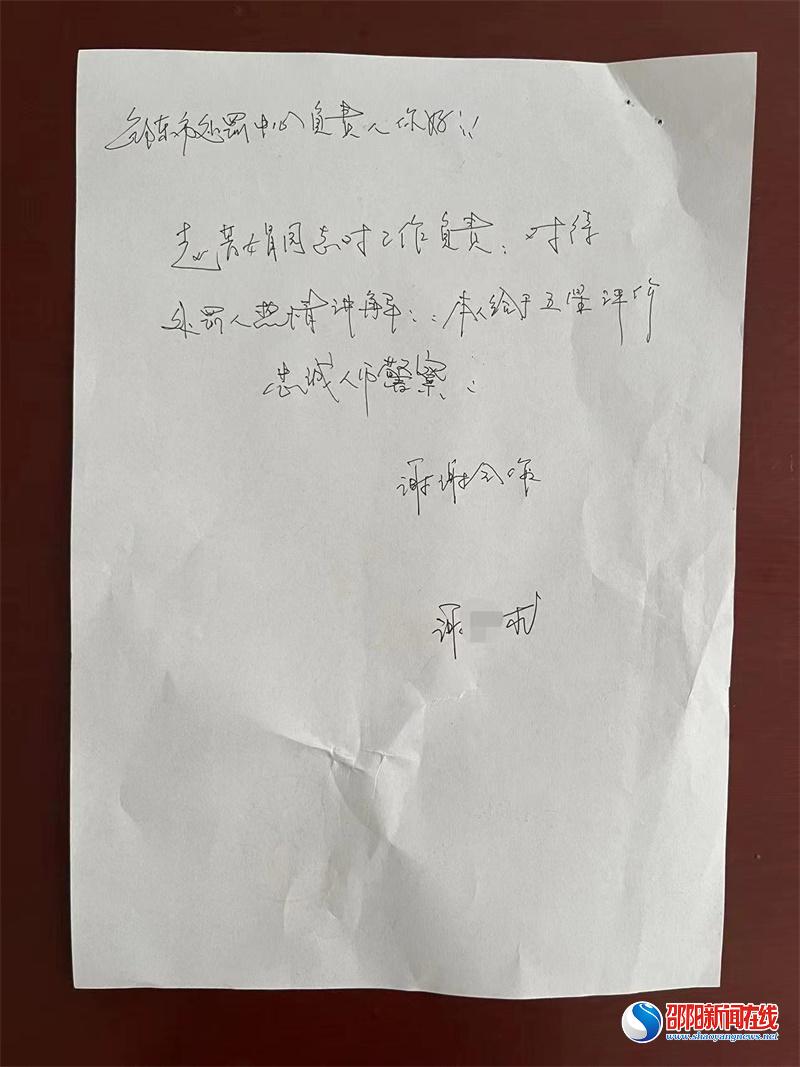 邵东市处罚中心负责人你好!!
赵若娟同志对工作负责：对待
处罚人热情讲解：：本人给于五星评价
忠诚人师警察：
谢谢合作
谢
邵阳新闻在线
www.shaoyangnews.net